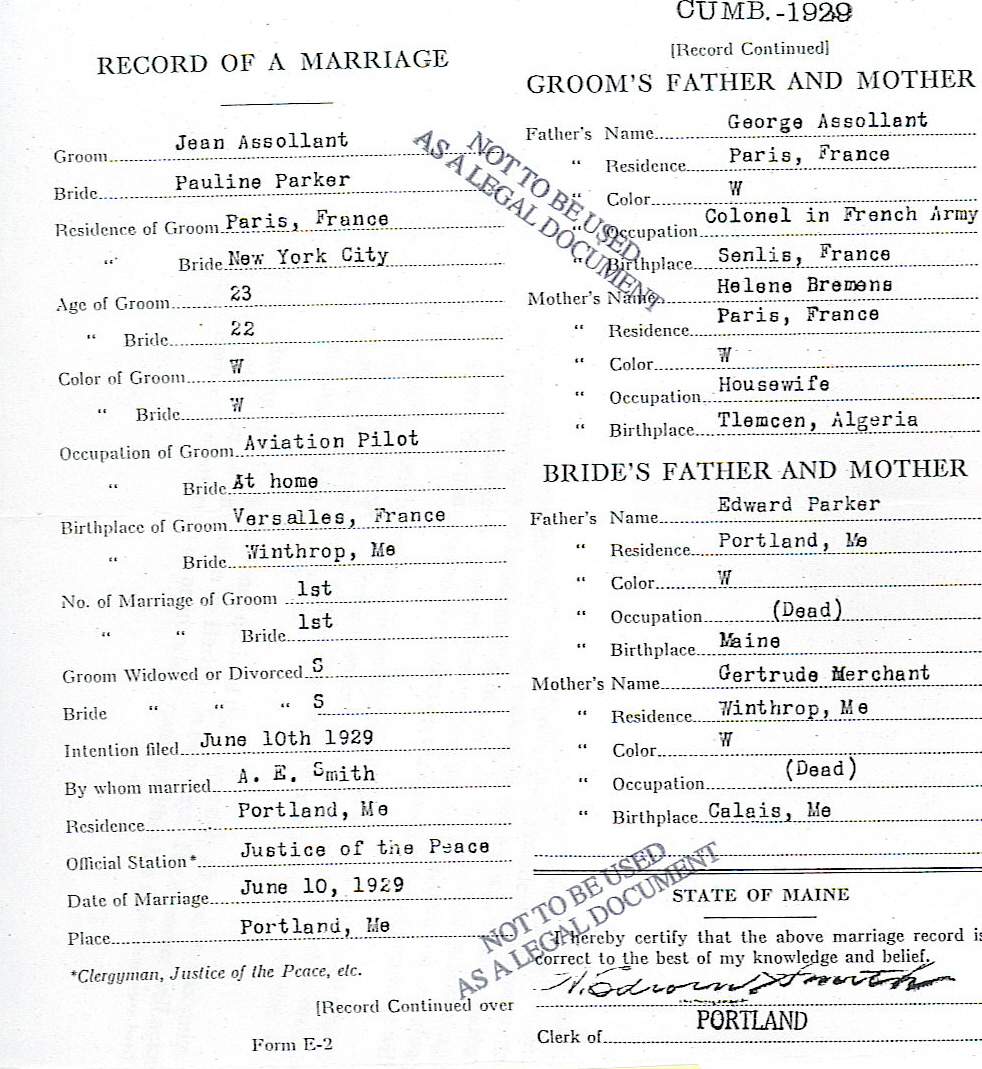 RECORD OF A MARRIAGE
Groom Jean Assollant
Bride Pauline Parker
Residence of Groom Paris, France
" Bride New York City
Age of Groom 23
" Bride 22
Color of Groom W
" Bride W
Occupation of Groom Aviation Pilot
" Bride At home
Birthplace of Groom Versalles, France
" Bride Winthrop, Me
No. of Marriage of Groom 1st
" " Bride 1st
Groom Widowed or Divorced S
Bride " " " S
Intention filed June 10th 1929
By whom married A. E. Smith
Residence Portland, Me
Official Station* Justice of the Peace
Date of Marriage June 10, 1929
Place Portland, Me
*Clergyman, Justice of the Peace, etc.
[Record Continued over
Form E-2
CUMB.-1929
[Record Continued]
GROOM'S FATHER AND MOTHER
Father's Name George Assollant
" Residence Paris, France
" Color W
" Occupation Colonel in French Army
" Birthplace Senlis, France
Mother's Name Helene Bremens
" Residence Paris, France
" Color W
" Occupation Housewife
" Birthplace Tlemcen, Algeria
BRIDE'S FATHER AND MOTHER
Father's Name Edward Parker
" Residence Portland, Me
" Color W
" Occupation (Dead)
" Birthplace Maine
Mother's Name Gertrude Merchant
" Residence Winthrop, Me
" Color W
" Occupation (Dead)
" Birthplace Calais, Me
STATE OF MAINE
I hereby certify that the above marriage record is
correct to the best of my knowledge and belief.
Smith
Clerk of PORTLAND
NOT TO BE USED
AS A LEGAL DOCUMENT
NOT TO BE USED
AS A LEGAL DOCUMENT